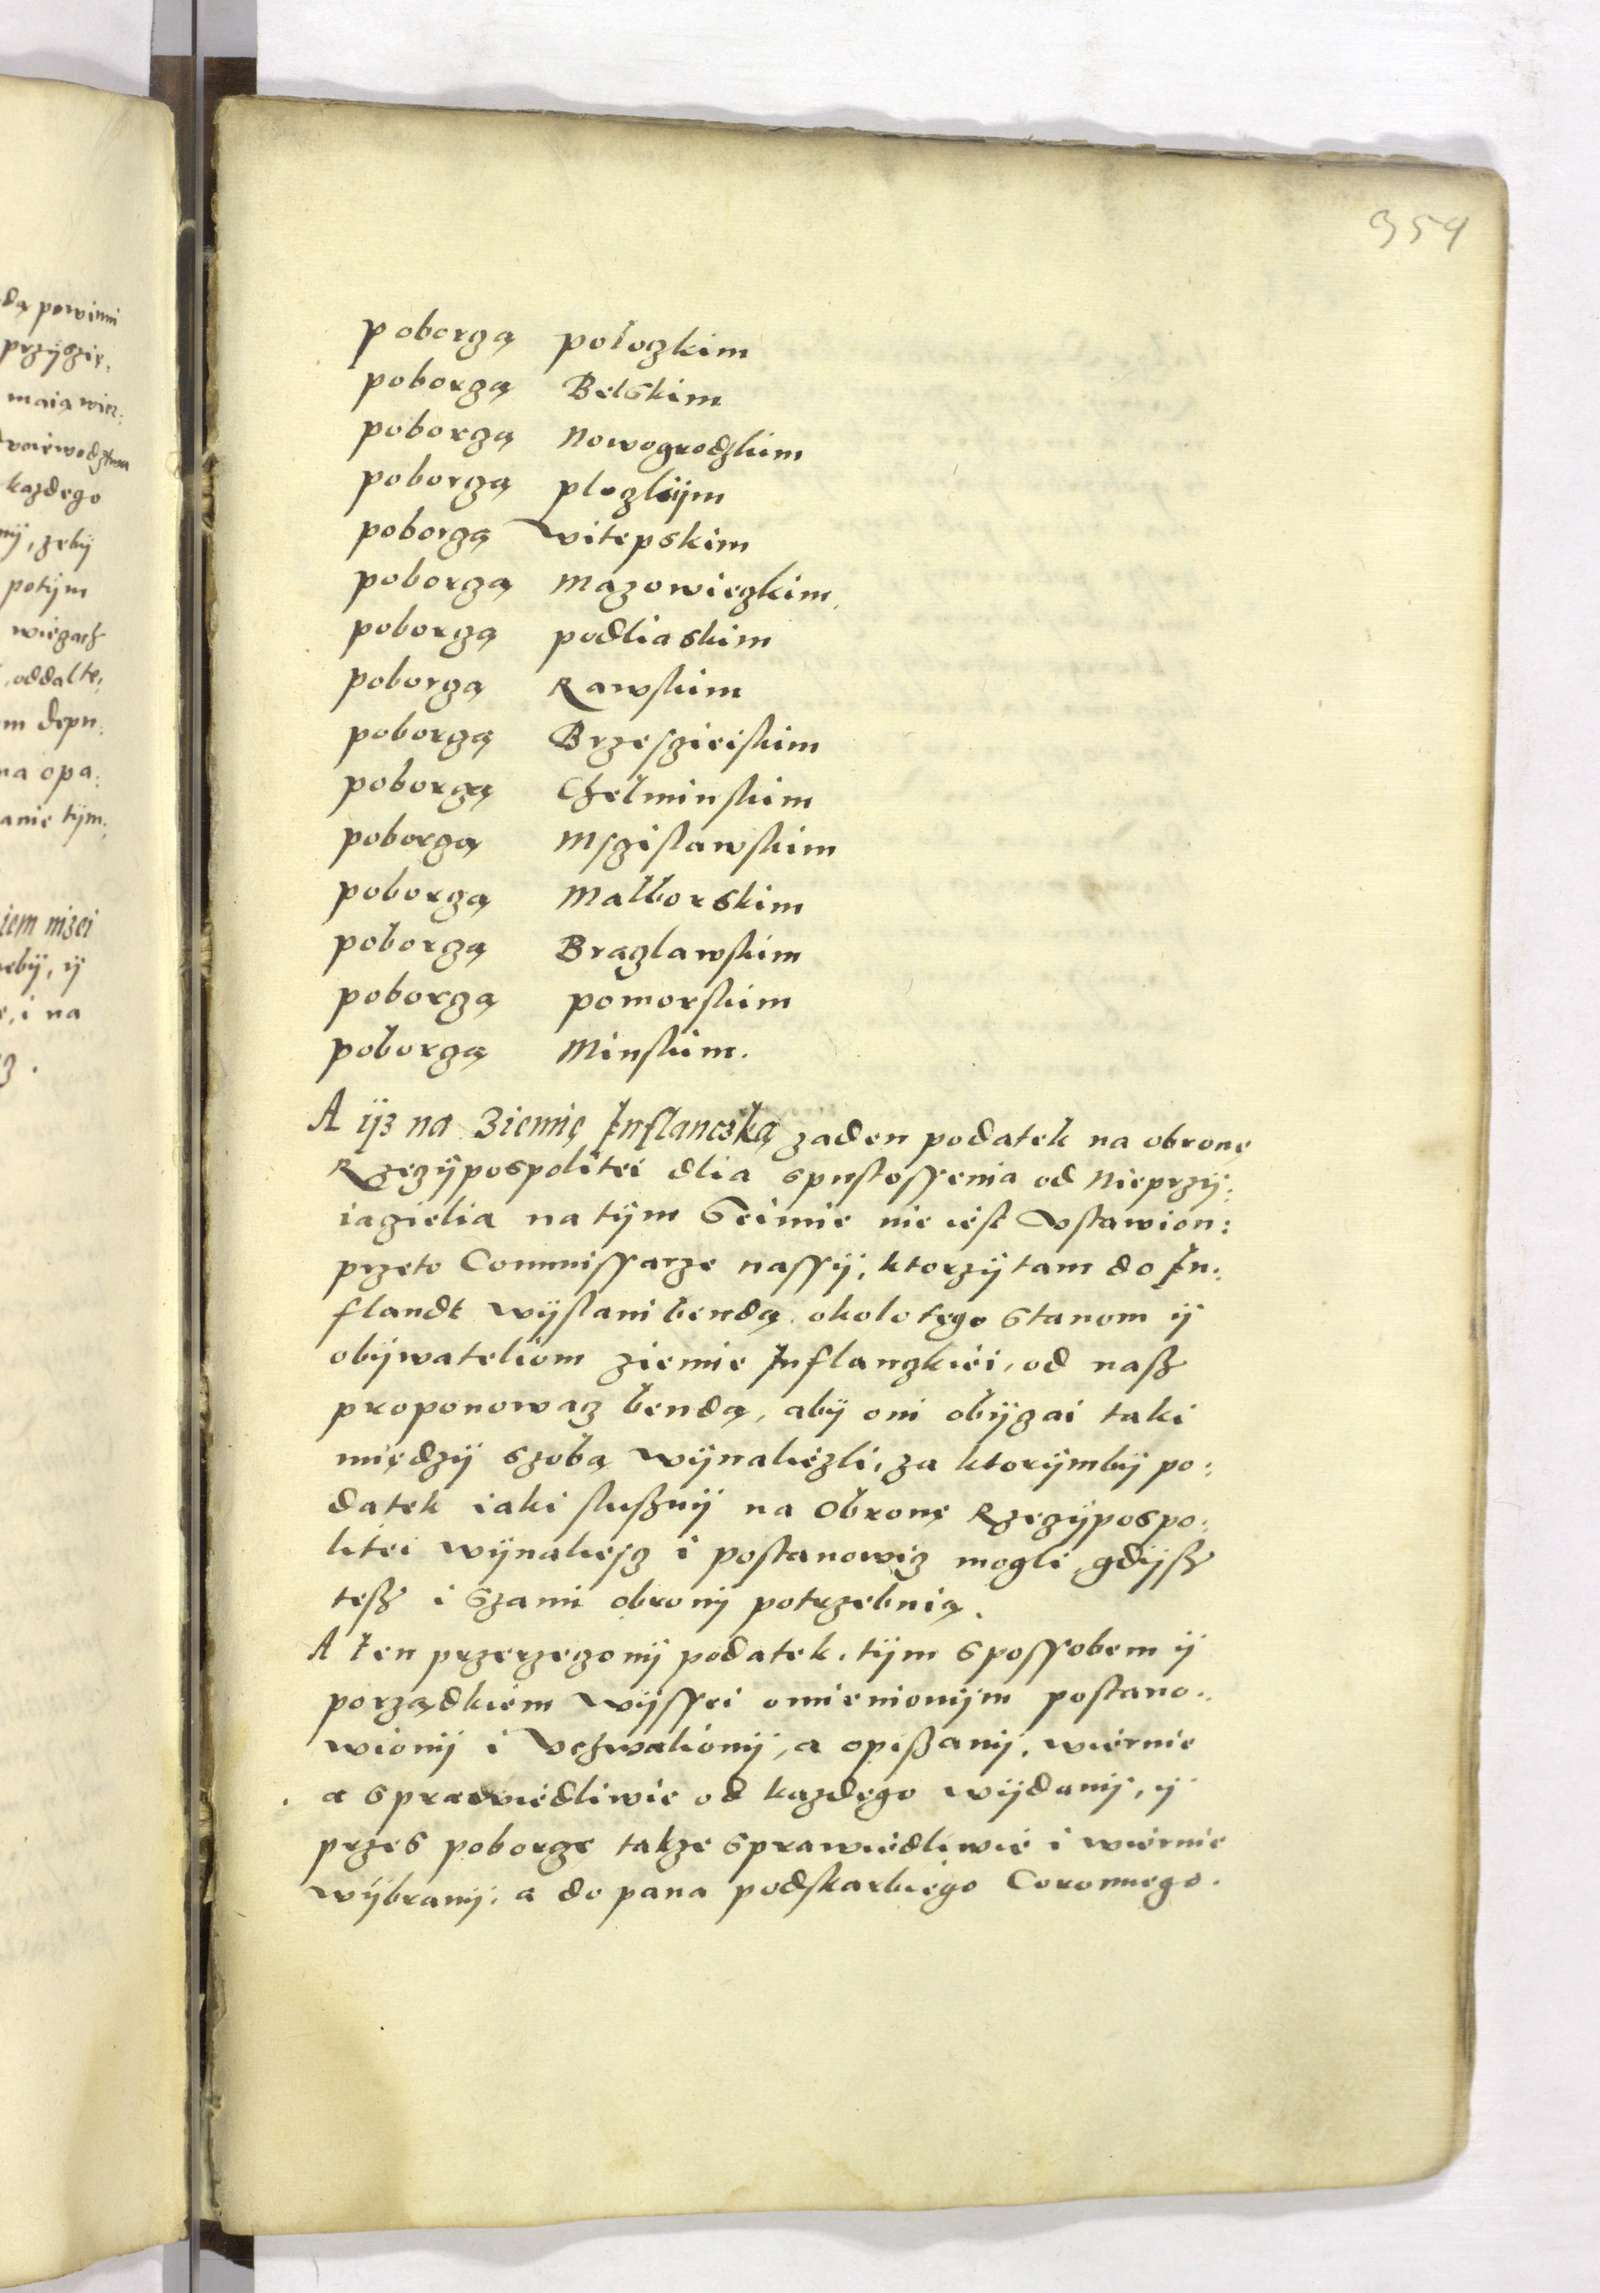 354
poborzą połozkim
poborzą Belskim
poborzą Nowogrodzkim
poborzą plozkÿm
poborzą witepskim
poborzą Mazowiezkim
poborzą podliaskim
poborzą Rawskim
poborzą Brzeszieiskim
poborzą Chelminskim
poborzą Mszislawskim
poborzą Malborskim
poborzą Brazlawskim
poborzą pomorskim
poborzą Minskim.
A ÿz na Ziemię Inflanczką zaden podatek na obrone
Rzezÿpospolitei dlia spustossenia od Nieprzÿ:
iazielia na tÿm Seimie nie iest Vstawion:
przeto Commissarze nassÿ, ktorzÿ tam do In:
flandt wÿslani bendą, okolo tego Stanom ÿ
obÿwateliom ziemie Inflanzkiei, od nasz
proponowaz bendą, abÿ oni obÿzai taki
międzÿ szobą wÿnaliezli, za ktorÿmbÿ po:
datek iaki sluszny na Obronę Rzezÿpospo:
litei wÿnaliesz i postanowiz mogli, gdÿsz
tesz i Szami obronÿ potrzebnią.
A ten przerzezonÿ podatek, tÿm spossobem ÿ
porządkiem wÿssei omienionÿm postano:
wionÿ i Vchwalionÿ, a opiszanÿ, wiernie
a sprawiedliwie od kazdego wÿdanÿ, ÿ
przes poborze takze sprawiedliwie i wiernie
wÿbranÿ, a do pana podskarbiego Coronnego.
dą powinni
przÿszir,
maią wier:
woiewodztwa
kazdego
nÿ, zebÿ
potÿm
wiezach
, oddalte,
m depu:
na opa:
anie tÿm:
iem nizei
ebÿ, ÿ
e, i na